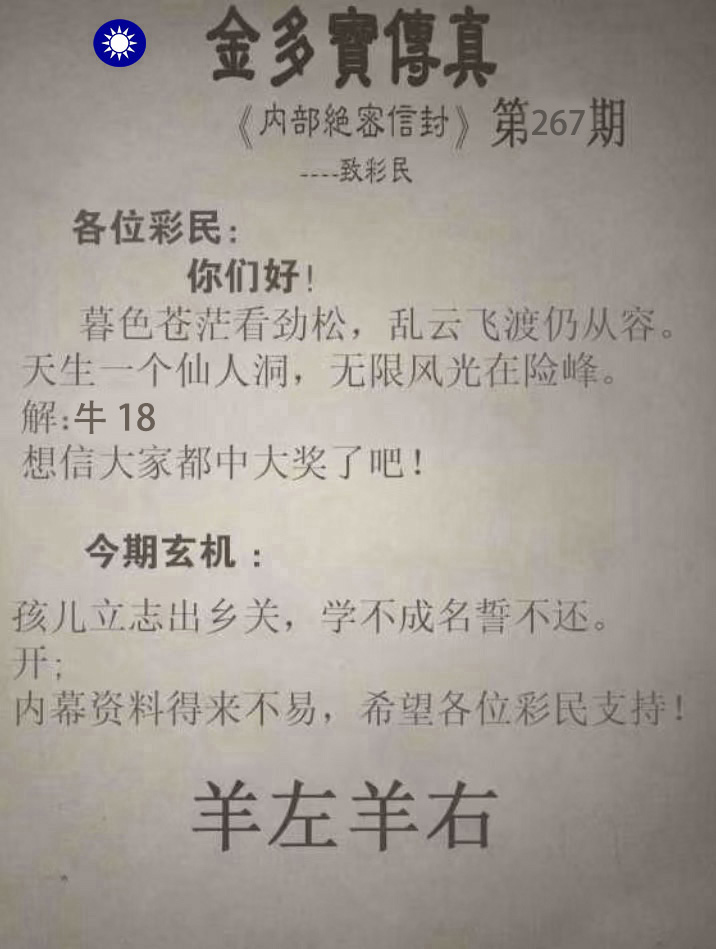 金多寶傳真
《内部絶密信封》第267期
----致彩民
各位彩民:
你们好!
暮色苍茫看劲松，乱云飞渡仍从容。
天生一个仙人洞，无限风光在险峰。
解:牛 18
想信大家都中大奖了吧!
今期玄机:
孩儿立志出乡关，学不成名誓不还。
开;
内幕资料得来不易，希望各位彩民支持!
羊左羊右